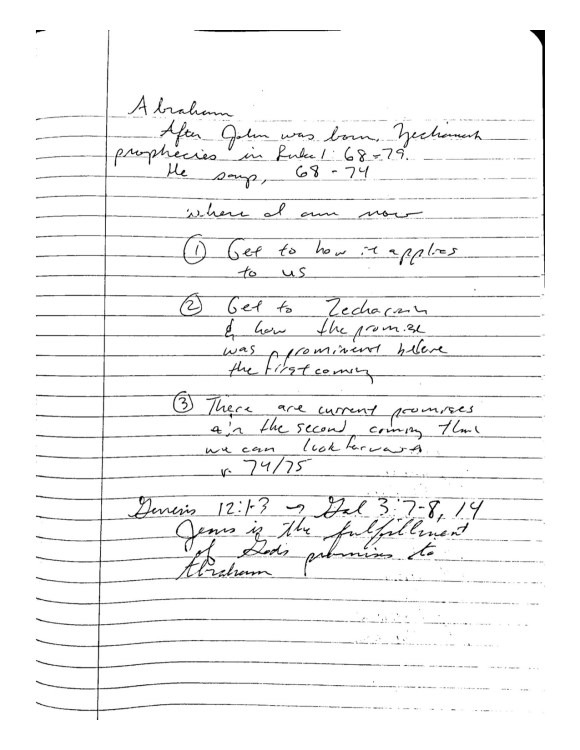 Abraham
After John was born, Zechariah
prophecies in Luke 1:68-79.
He says, 68-74
where I am now
① Get to how it applies
to us
② Get to Zechariah
& how the promise
was prominent before
the first coming
③ There are current promises
in the second coming that
we can look forward
v. 74/75
Genesis 12:1-3 → Gal 3:7-8, 14
Jesus is the fulfillment
of Gods promises to
Abraham